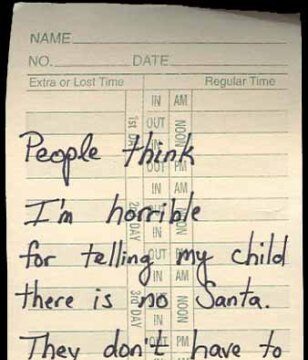 NAME
NO. DATE
Extra or Lost Time Regular Time
IN AM
OUT NOON
IN
OUT PM
People think
IN AM
I'm horrible
DAY NOON
OUT PM
for telling my child
IN AM
there is no Santa.
3rd DAY NOON
IN
OUT PM
They don't have to